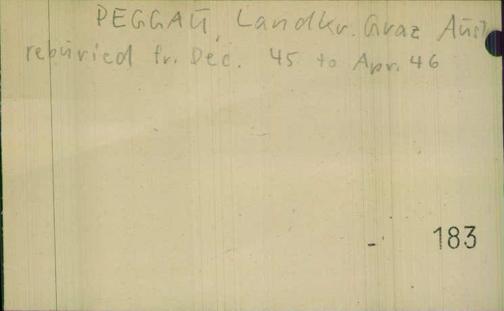 PEGGAU, Landkr. Graz Aust
reburied fr. Dec. 45 to Apr. 46
- 183